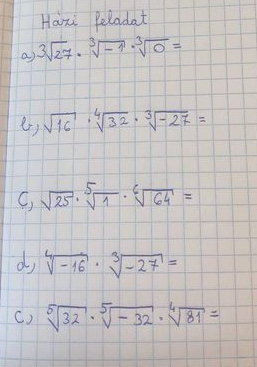 Házi feladat
a) ³√27 · ³√-1 · ³√0 =
b, √16 · ⁴√32 · ³√-27 =
C, √25 · ⁵√1 · ⁶√64 =
d) ⁴√-16 · ³√-27 =
c, ⁵√32 · ⁵√-32 · ⁴√81 =